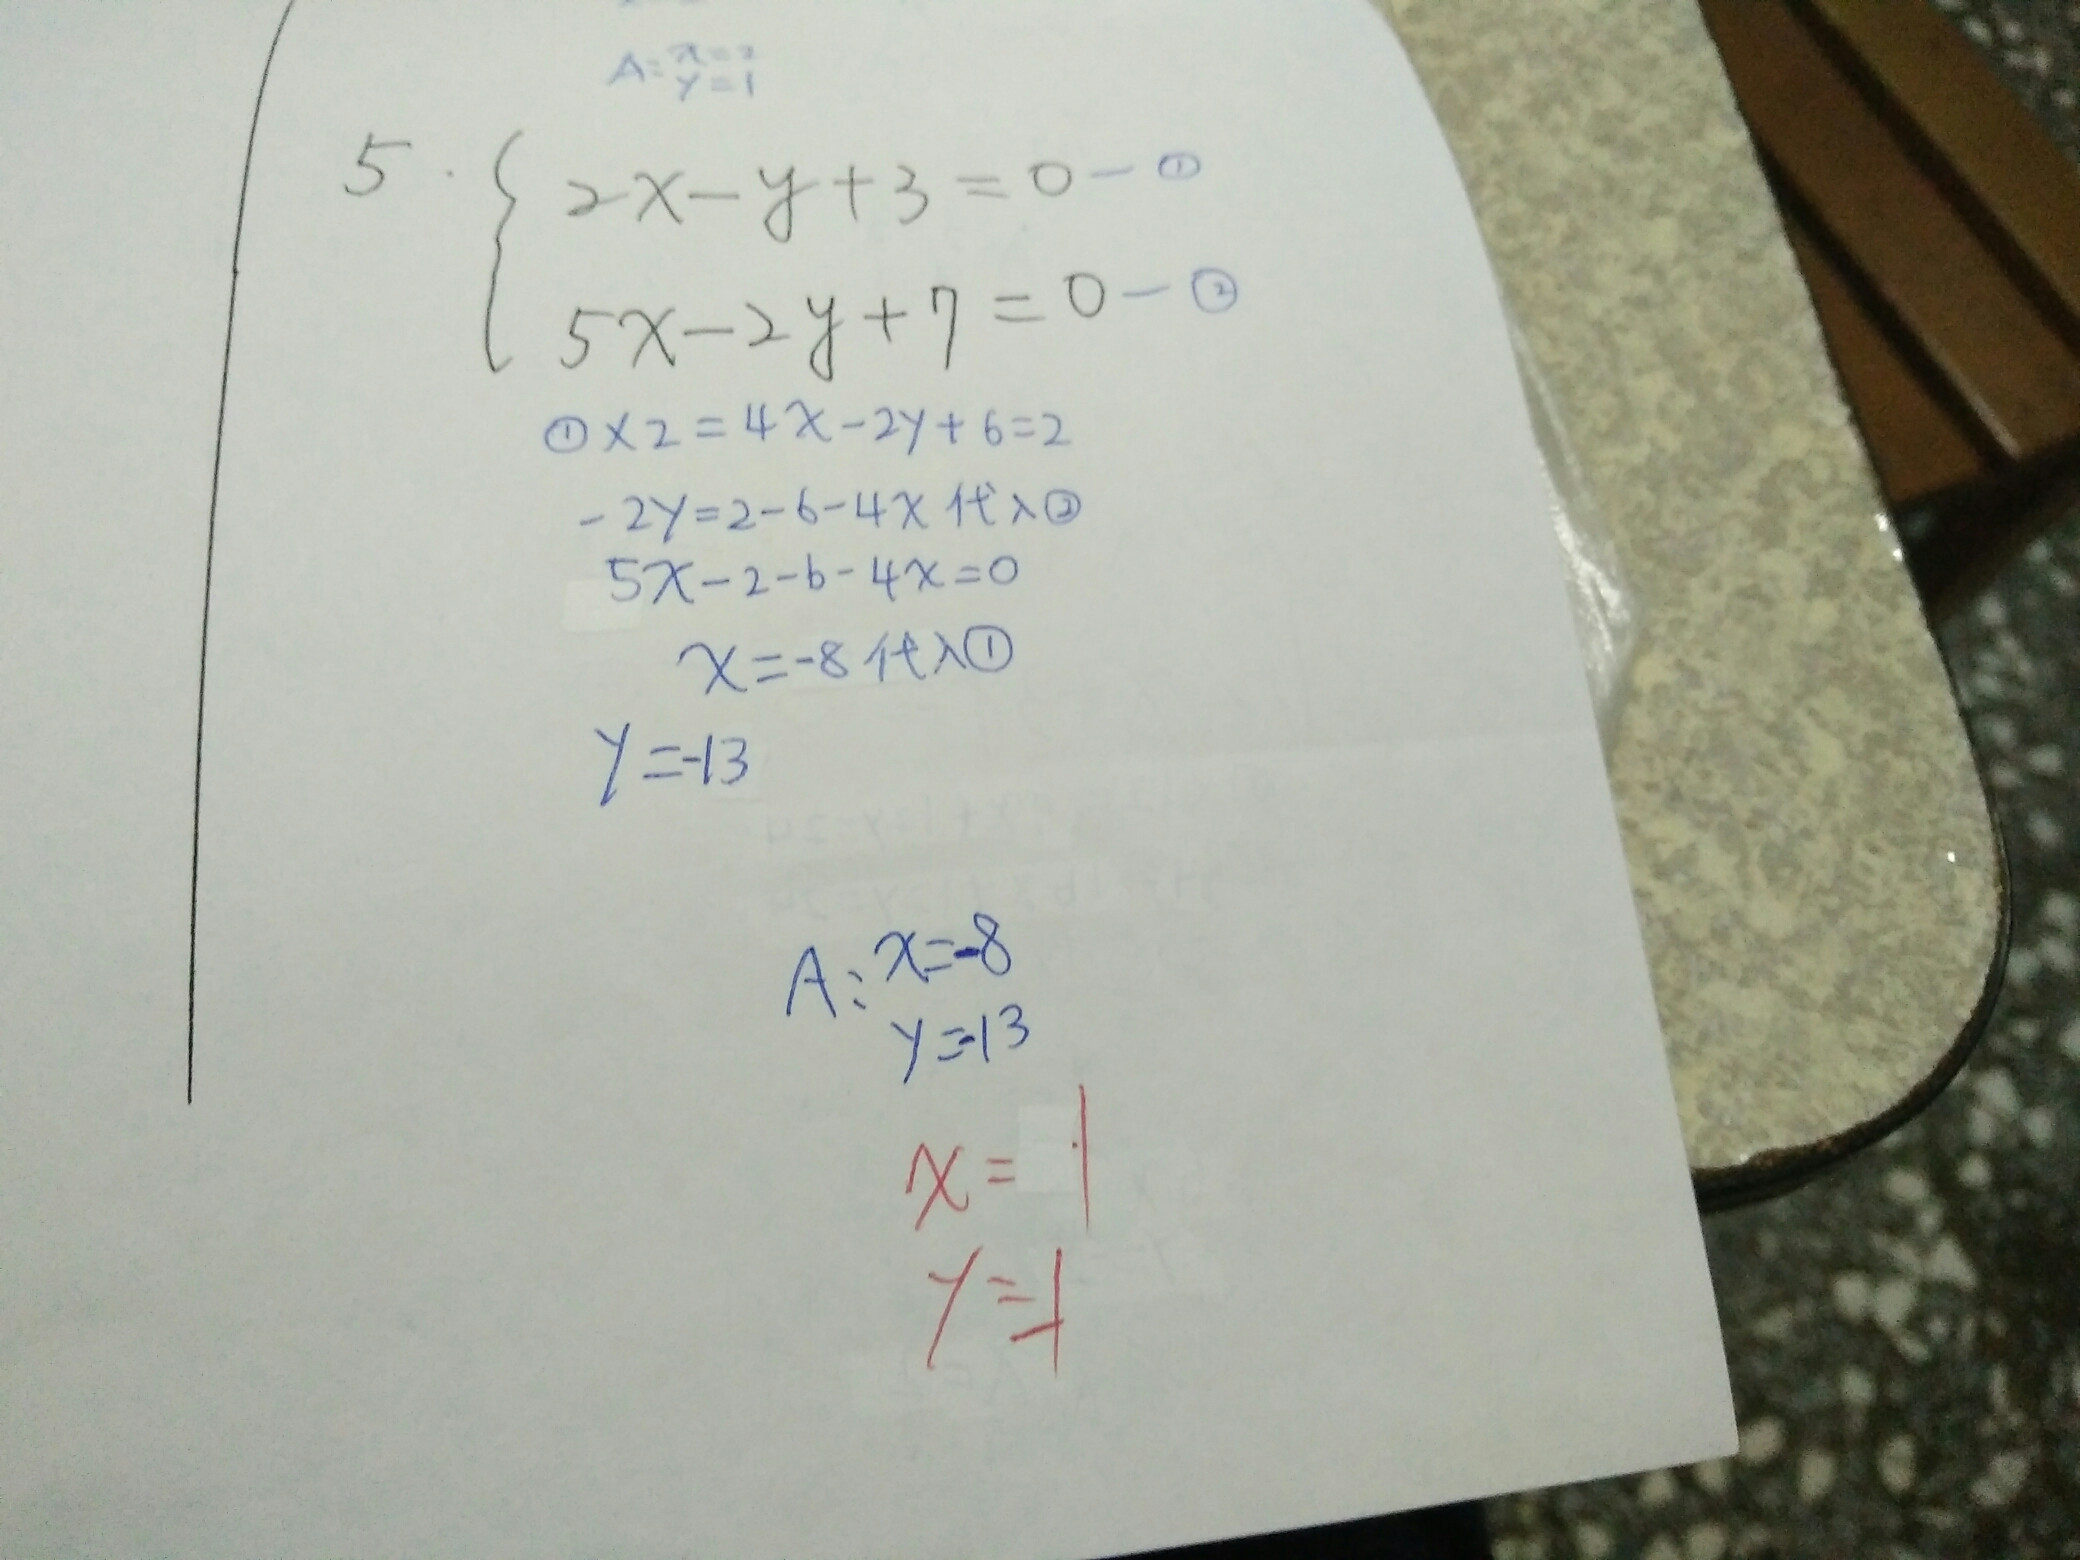 A: x=2
y=1
5. { 2x-y+3=0-①
5x-2y+7=0-②
①×2=4x-2y+6=2
-2y=2-6-4x代入②
5x-2-6-4x=0
x=-8代入①
y=-13
A: x=-8
y=-13
x=1
y=1